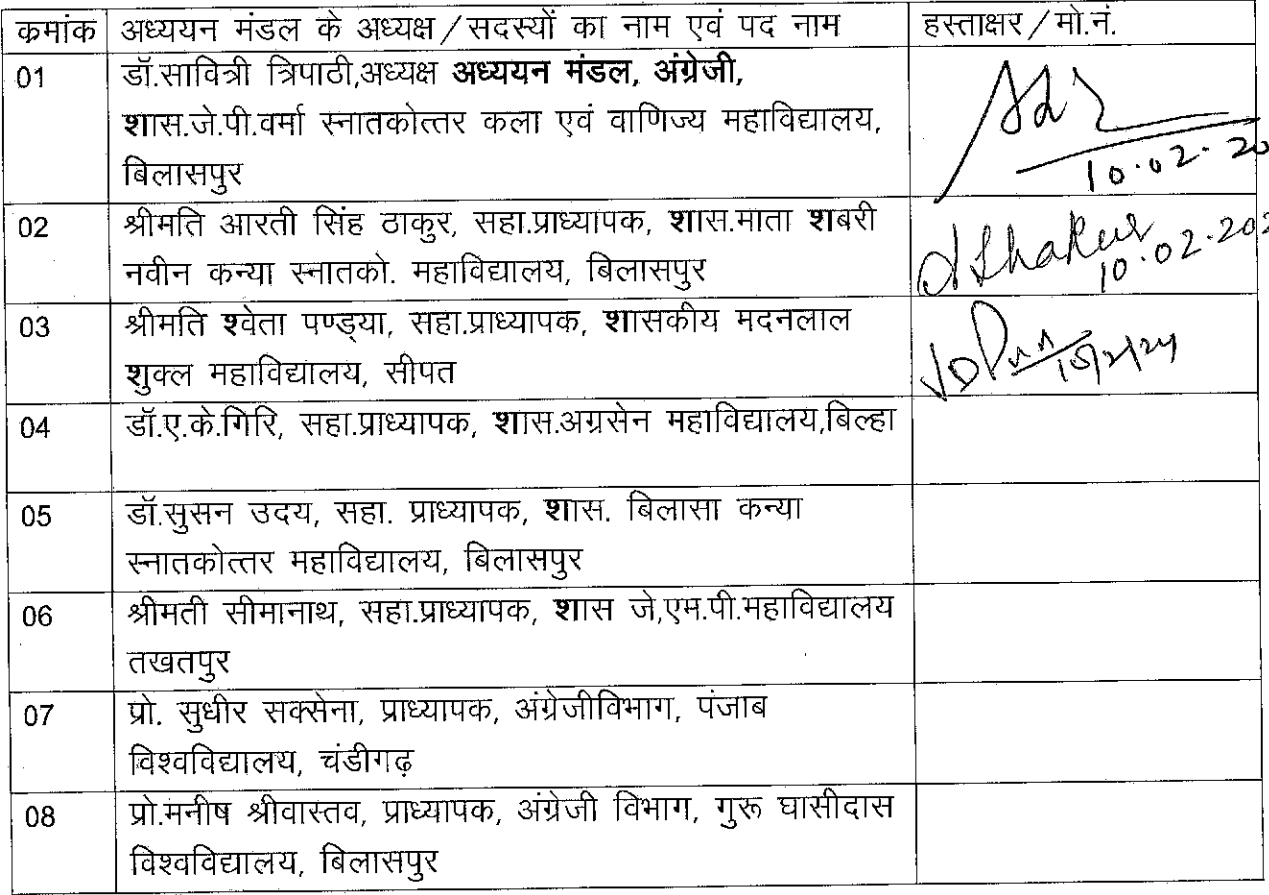 क्रमांक अध्ययन मंडल के अध्यक्ष/सदस्यों का नाम एवं पद नाम हस्ताक्षर/मो.नं.
01 डॉ.सावित्री त्रिपाठी,अध्यक्ष अध्ययन मंडल, अंग्रेजी,
शास.जे.पी.वर्मा स्नातकोत्तर कला एवं वाणिज्य महाविद्यालय,
बिलासपुर
10.02.20
02 श्रीमति आरती सिंह ठाकुर, सहा.प्राध्यापक, शास.माता शबरी
नवीन कन्या स्नातको. महाविद्यालय, बिलासपुर
Thakur
10.02.202
03 श्रीमति श्वेता पण्ड्या, सहा.प्राध्यापक, शासकीय मदनलाल
शुक्ल महाविद्यालय, सीपत
04 डॉ.ए.के.गिरि, सहा.प्राध्यापक, शास.अग्रसेन महाविद्यालय,बिल्हा
05 डॉ.सुसन उदय, सहा. प्राध्यापक, शास. बिलासा कन्या
स्नातकोत्तर महाविद्यालय, बिलासपुर
06 श्रीमती सीमानाथ, सहा.प्राध्यापक, शास जे,एम.पी.महाविद्यालय
तखतपुर
07 प्रो. सुधीर सक्सेना, प्राध्यापक, अंग्रेजीविभाग, पंजाब
विश्वविद्यालय, चंडीगढ़
08 प्रो.मनीष श्रीवास्तव, प्राध्यापक, अंग्रेजी विभाग, गुरू घासीदास
विश्वविद्यालय, बिलासपुर